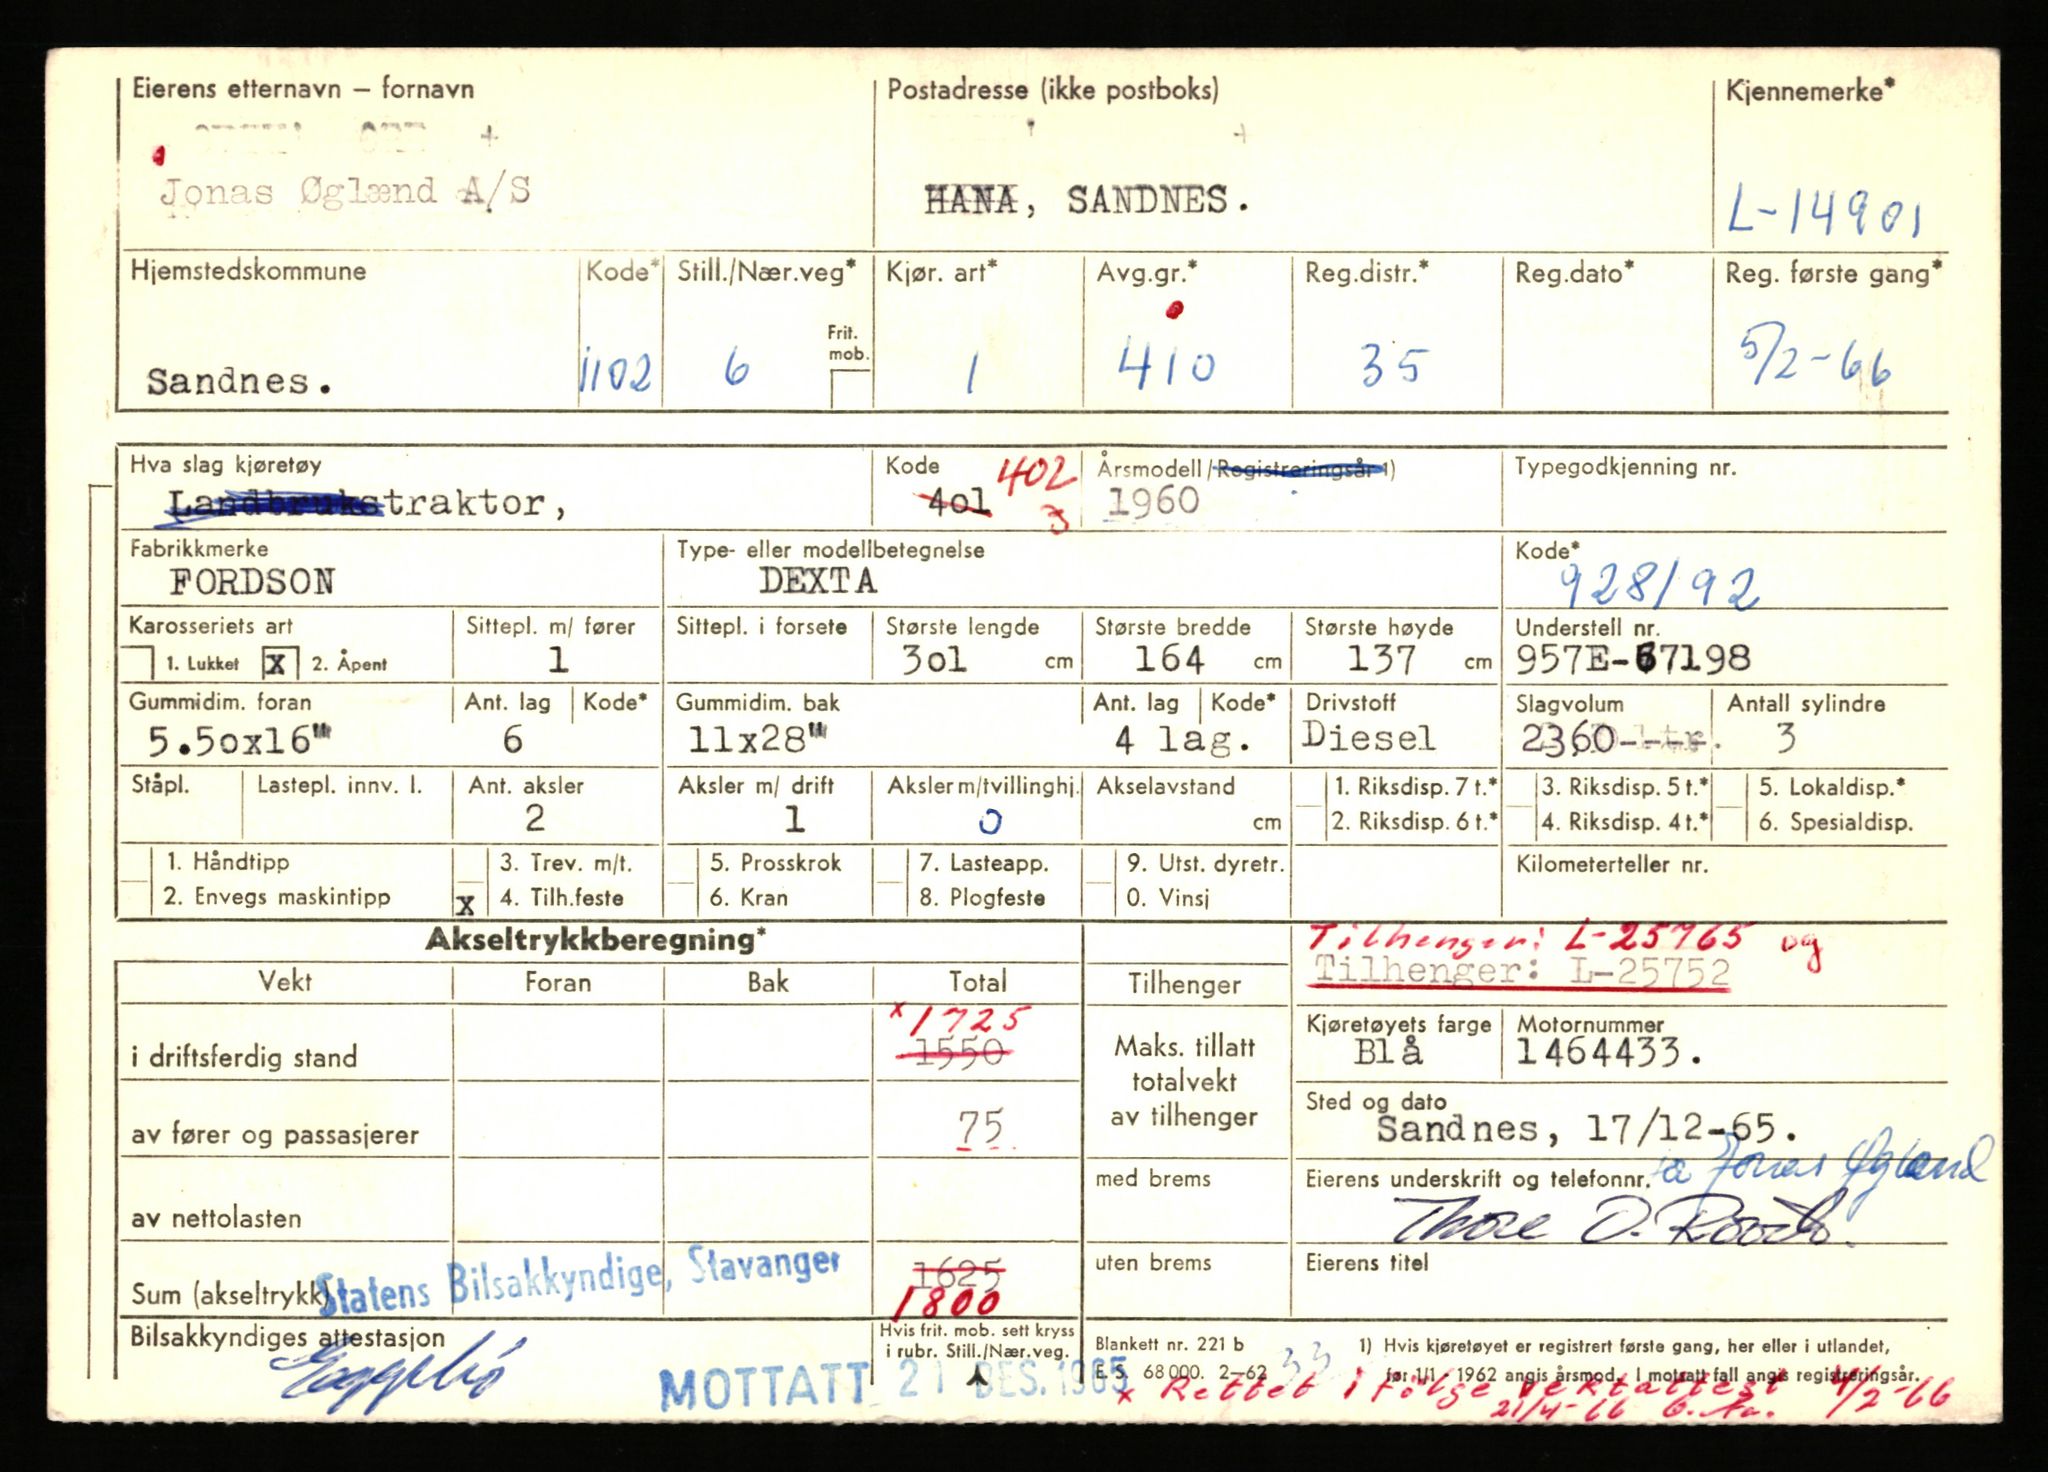 Eierens etternavn – fornavn Postadresse (ikke postboks) Kjennemerke*
Jonas Øglænd A/S HANA, SANDNES. L-14901
Hjemstedskommune Kode* Still./Nær.veg* Kjør. art* Avg.gr.* Reg.distr.* Reg.dato* Reg. første gang*
Frit. mob.
Sandnes. 1102 6 1 410 35 5/2-66
Hva slag kjøretøy Kode 402 Årsmodell/Registreringsår 1) Typegodkjenning nr.
Landbrukstraktor, 4o1 3 1960
Fabrikkmerke Type- eller modellbetegnelse Kode*
FORDSON DEXTA 928/92
Karosseriets art Sittepl. m/ fører Sittepl. i forsete Største lengde Største bredde Største høyde Understell nr.
1. Lukket x 2. Åpent 1 3o1 cm 164 cm 137 cm 957E-67198
Gummidim. foran Ant. lag Kode* Gummidim. bak Ant. lag Kode* Drivstoff Slagvolum Antall sylindre
5.5ox16" 6 11x28" 4 lag. Diesel 2360---- 3
Ståpl. Lastepl. innv. l. Ant. aksler Aksler m/ drift Aksler m/tvillinghj. Akselavstand 1. Riksdisp. 7 t.* 3. Riksdisp. 5 t.* 5. Lokaldisp.*
2 1 0 cm 2. Riksdisp. 6 t.* 4. Riksdisp. 4 t.* 6. Spesialdisp.
1. Håndtipp 3. Trev. m/t. 5. Prosskrok 7. Lasteapp. 9. Utst. dyretr. Kilometerteller nr.
2. Envegs maskintipp x 4. Tilh.feste 6. Kran 8. Plogfeste 0. Vinsj
Akseltrykkberegning* Tilhenger: L-25765 og
Tilhenger: L-25752
Vekt Foran Bak Total Tilhenger
x 1725
i driftsferdig stand 1550
Maks. tillatt totalvekt av tilhenger
Kjøretøyets farge Motornummer
Blå 1464433.
av fører og passasjerer 75
Sted og dato
Sandnes, 17/12-65.
av nettolasten med brems
Eierens underskrift og telefonnr. Jonas Øglænd
Thore O.
1625
Sum (akseltrykk) 1800 uten brems Eierens titel
Statens Bilsakkyndige, Stavanger
Bilsakkyndiges attestasjon Hvis frit. mob. sett kryss i rubr. Still./Nær.veg.
Eggebø
MOTTATT 21 DES. 1965
Blankett nr. 221 b
E. S. 68 000. 2–62 33
1) Hvis kjøretøyet er registrert første gang, her eller i utlandet,
før 1/1 1962 angis årsmod. I motsatt fall angis registreringsår.
x Rettet i følge vektattest 4/2-66
21/4-66